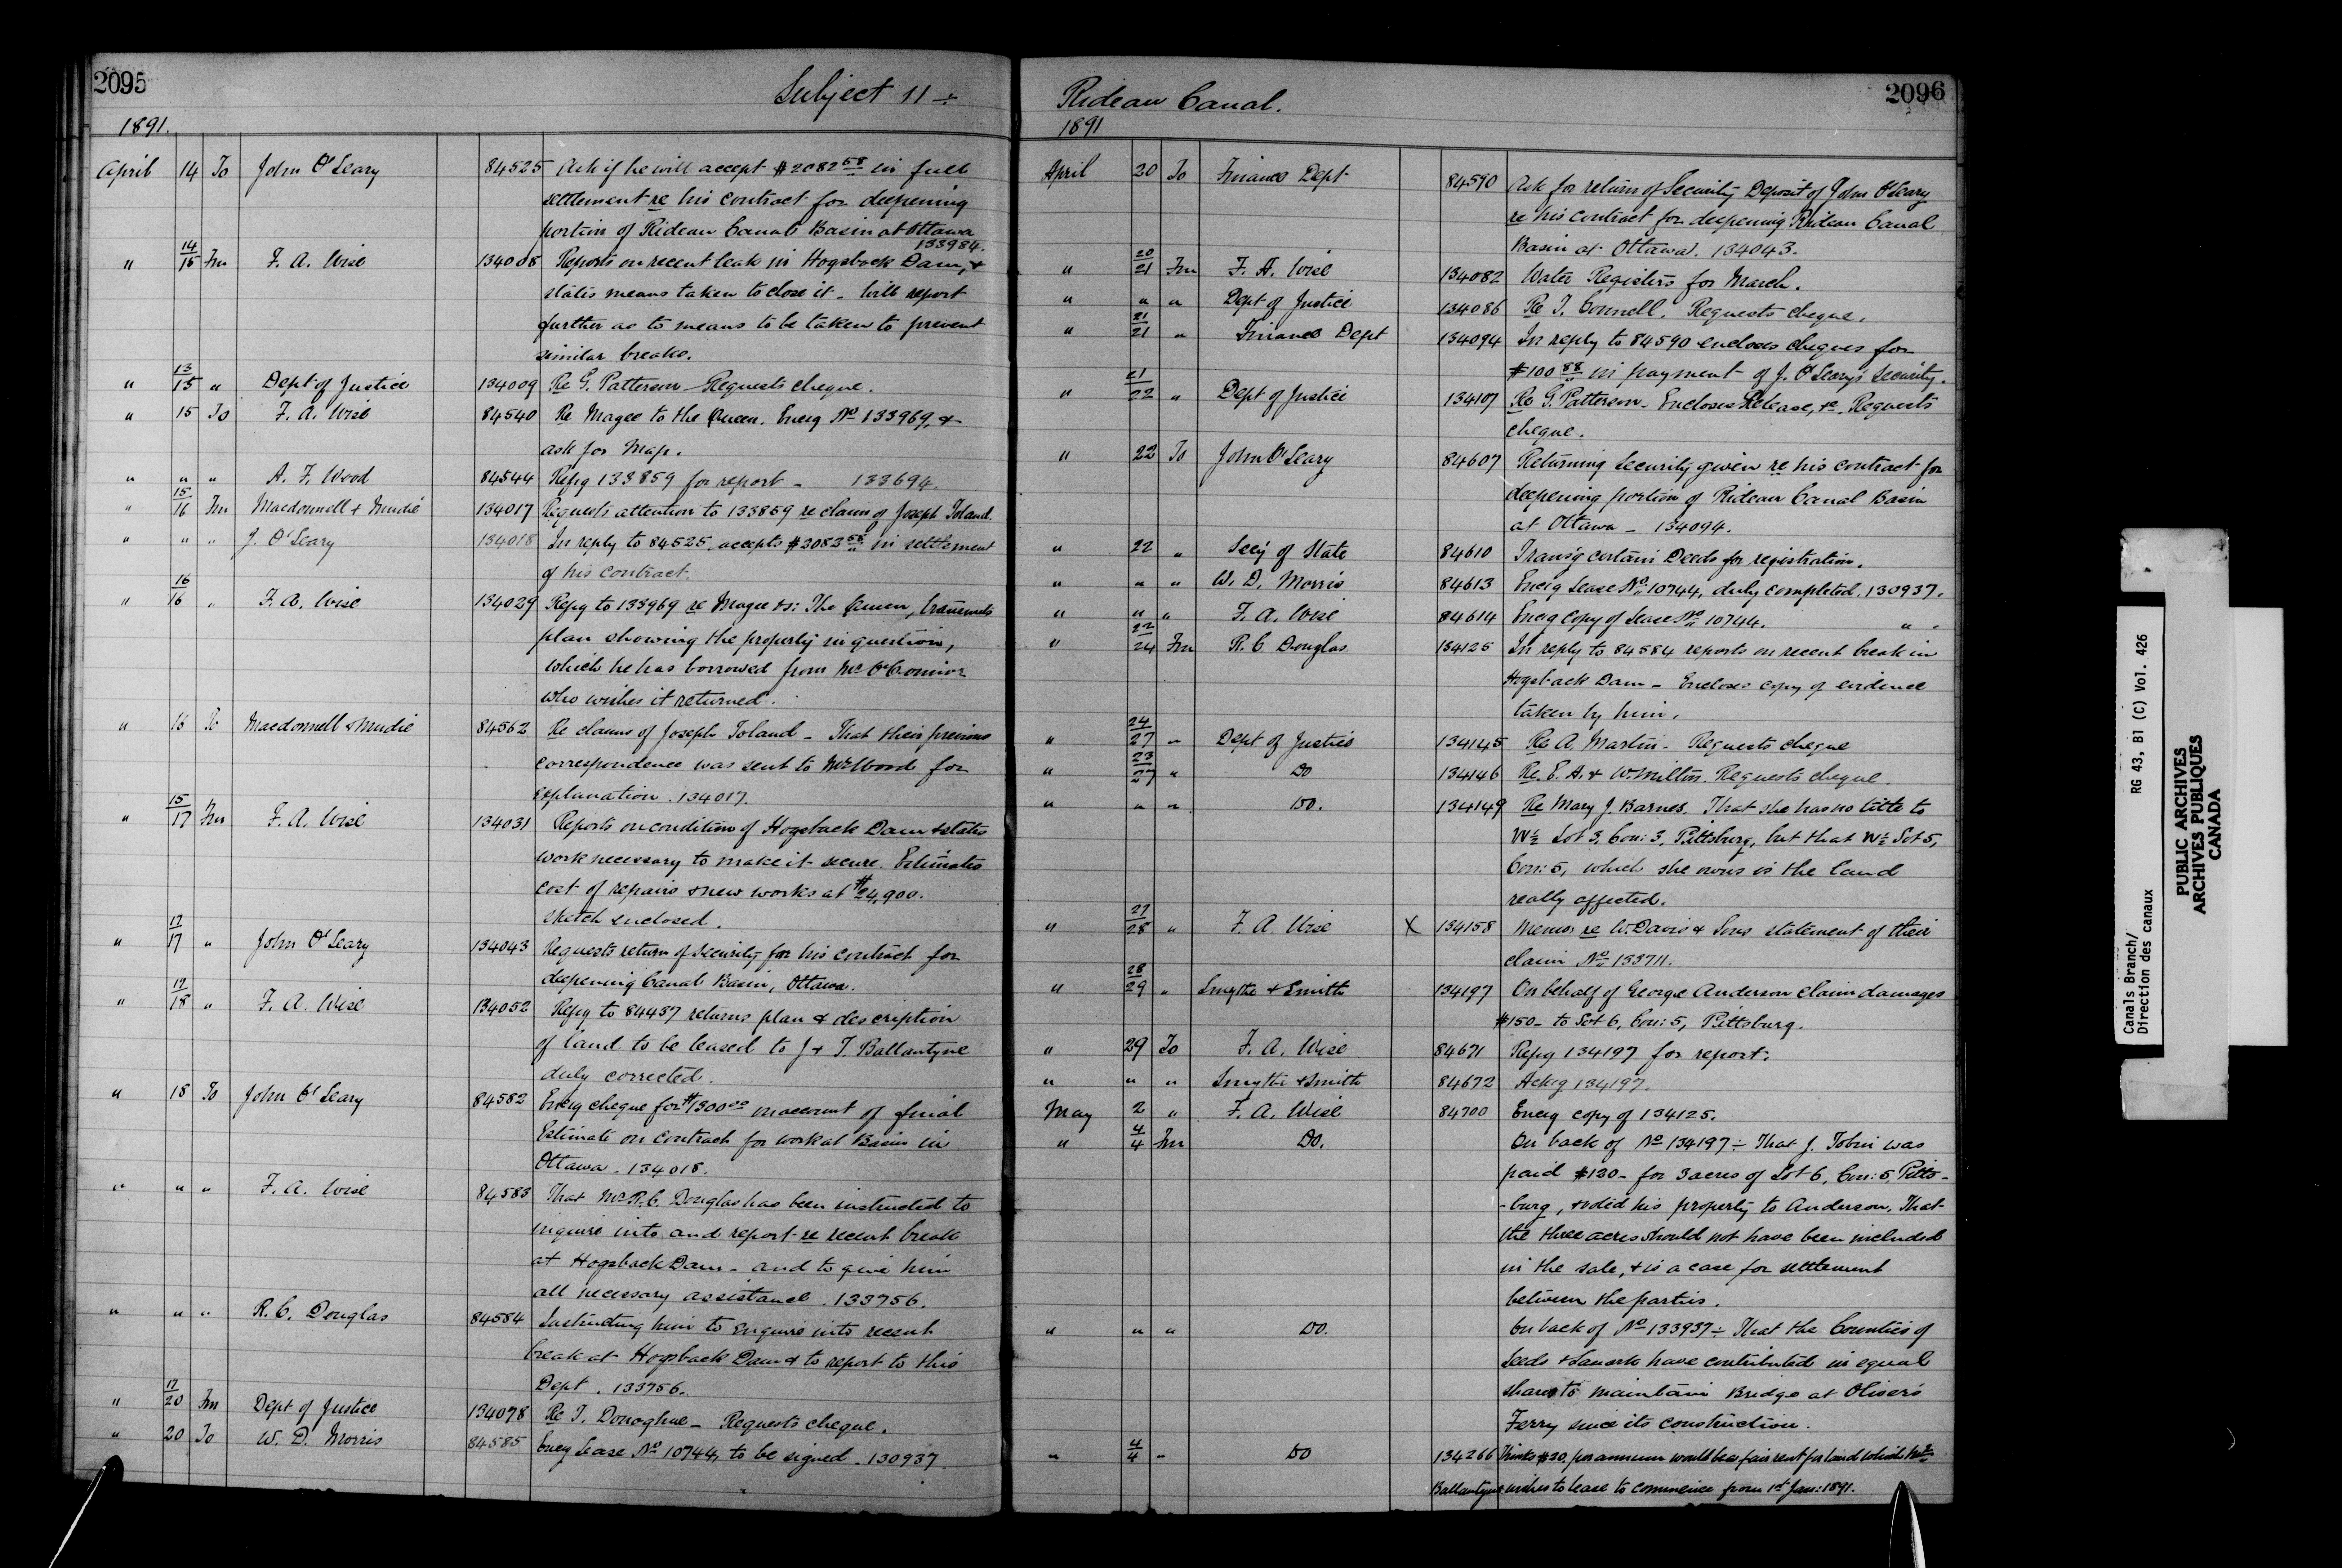 2095
Subject 11 ÷
1891.
April 14 To John O'Leary 84525 Ask if he will accept $2082 58 in full
settlement re his contract for deepening
portion of Rideau Canal Basin at Ottawa
133984.
" 14/15 Frm F. A. Wise 134008 Reports on recent leak in Hogsback Dam, &
states means taken to close it - Will report
further as to means to be taken to prevent
similar breaks.
" 13/15 " Dept of Justice 134009 Re G. Patterson - Requests cheque.
" 15 To F. A. Wise 84540 Re Magee to the Queen. Encg No 133969, &
ask for Map.
" " " A. F. Wood 84544 Refg 133859 for report - 133694.
" 15/16 Frm Macdonnell & Mudie 134017 Requests attention to 133859 re claim of Joseph Toland.
" " " J. O'Leary 134018 In reply to 84525 accepts $2082 58 in settlement
of his contract.
" 16/16 " F. A. Wise 134029 Refg to 133969 re Magee vs: The Queen, transmits
plan showing the property in question,
which he has borrowed from Mr O'Connor
who wishes it returned.
" 16 To Macdonnell & Mudie 84562 Re claims of Joseph Toland - That their previous
correspondence was sent to Mr Wood for
explanation. 134017.
" 15/17 Frm F. A. Wise 134031 Reports on condition of Hogsback Dam & states
work necessary to make it secure. Estimates
cost of repairs & new works at $24,900.
Sketch enclosed.
" 17/17 " John O'Leary 134043 Requests return of security for his contract for
deepening Canal Basin, Ottawa.
" 17/18 " F. A. Wise 134052 Refg to 84487 returns plan & description
of land to be leased to J & T. Ballantyne
duly corrected.
" 18 To John O'Leary 84582 Encg cheque for $1300 00 on account of final
Estimate on contract for work at Basin in
Ottawa. 134018.
" " " F. A. Wise 84583 That Mr R. C. Douglas has been instructed to
inquire into and report re recent break
at Hogsback Dam - and to give him
all necessary assistance. 133756.
" " " R. C. Douglas 84584 Instructing him to enquire into recent
break at Hogsback Dam & to report to this
Dept. 133756.
" 17/20 Frm Dept of Justice 134078 Re T. Donoghue - Requests cheque.
" 20 To W. D. Morris 84585 Encg Lease No 10744, to be signed - 130937
Rideau Canal.
2096
1891
April 20 To Finance Dept 84590 Ask for return of Security Deposit of John O'Leary
re his contract for deepening Rideau Canal
Basin at Ottawa. 134043.
" 20/21 Frm F. A. Wise 134082 Water Registers for March.
" " " Dept of Justice 134086 Re T. Connell. Requests cheque.
" 21/21 " Finance Dept 134094 In reply to 84590 encloses cheques for
$100 88 in payment of J. O'Leary's Security.
" 21/22 " Dept of Justice 134107 Re G. Patterson - Encloses Release, &c. Requests
cheque.
" 22 To John O'Leary 84607 Returning Security given re his contract for
deepening portion of Rideau Canal Basin
at Ottawa - 134094.
" 22 " Secy of State 84610 Transg certain Deeds for registration.
" " " W. D. Morris 84613 Encg Lease No 10744, duly completed. 130937.
" " " F. A. Wise 84614 Encg copy of Lease No 10744. " "
" 22/24 Frm R. C Douglas 134125 In reply to 84584 reports on recent break in
Hogsback Dam - Encloses copy of evidence
taken by him.
" 24/27 " Dept of Justice 134145 Re A. Martin - Requests cheque
" 23/27 " Do 134146 Re E. A. & W. Milton. Requests cheque.
" " " Do. 134149 Re Mary J. Barnes. That she has no title to
W½ Lot 3, Con: 3, Pittsburg, but that W½ Lot 5,
Con: 5, which she owns is the land
really affected.
" 27/28 " F. A. Wise X 134158 Memo. re W. Davis & Sons statement of their
claim No 133711.
" 28/29 " Smythe & Smith 134197 On behalf of George Anderson claim damages
$150- to Lot 6, Con: 5, Pittsburg.
" 29 To F. A. Wise 84671 Refg 134197 for report.
" " " Smythe & Smith 84672 Ackg 134197.
May 2 " F. A. Wise 84700 Encg copy of 134125.
" 4/4 Frm Do. On back of No 134197 ÷ That J. Tobin was
paid $120- for 3 acres of Lot 6, Con: 5, Pitts-
-burg, & sold his property to Anderson, That
the three acres should not have been included
in the sale, & is a case for settlement
between the parties.
" " " Do. On back of No 133937 ÷ That the Counties of
Leeds & Lanark have contributed in equal
shares to maintain Bridge at Oliver's
Ferry since its construction.
" 4/4 " Do 134266 Thinks $20. per annum would be a fair rent for land which
Ballantyne wishes to lease to commence from 1st Jan: 1891.
Canals Branch/
Direction des canaux
RG 43, B1 (C) Vol. 426
PUBLIC ARCHIVES
ARCHIVES PUBLIQUES
CANADA